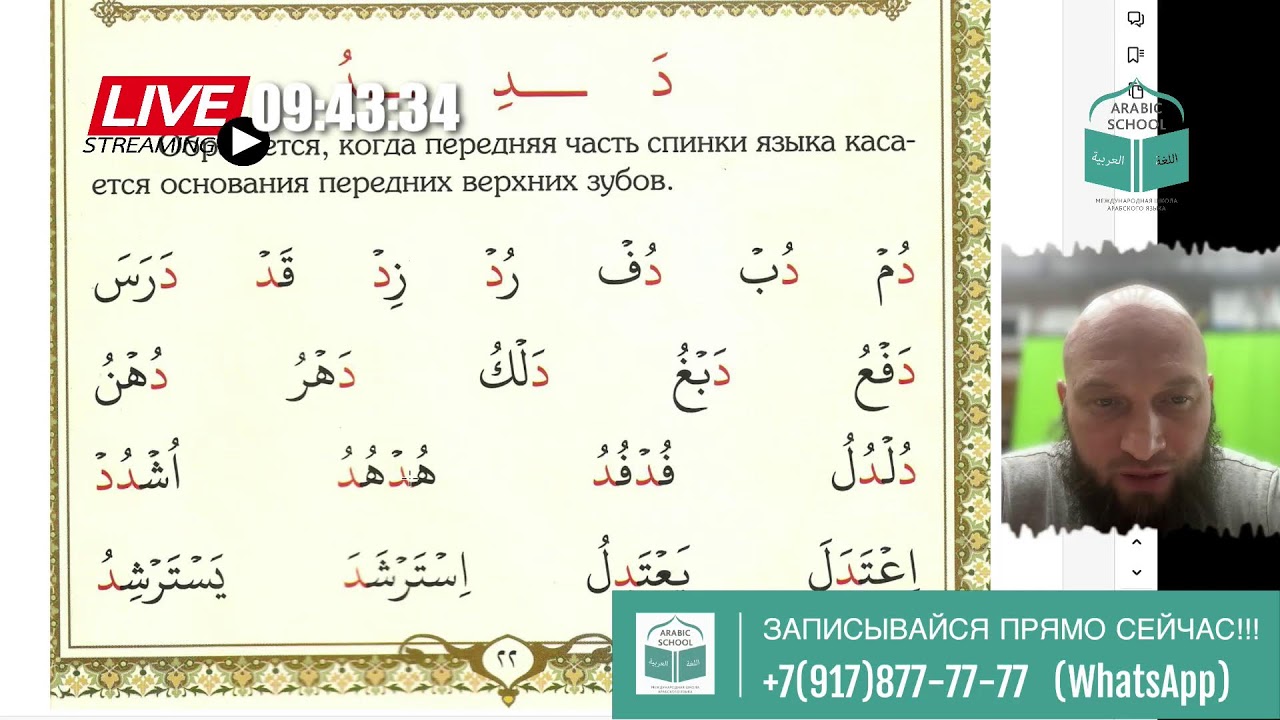 دَ دِ دُ
LIVE 09:43:34
STREAMING
когда передняя часть спинки языка каса-
ется основания передних верхних зубов.
دُمْ دُبْ دُفْ رُدْ زِدْ قَدْ دَرَسَ
دَفْعُ دَبْغُ دَلْكُ دَهْرُ دُهْنُ
دُلْدُلُ فُدْفُدُ هُدْهُدُ اُشْدُدْ
اِعْتَدَلَ يَعْتَدِلُ اِسْتَرْشَدَ يَسْتَرْشِدُ
٢٢
ARABIC
SCHOOL
العربية اللغة
МЕЖДУНАРОДНАЯ ШКОЛА
АРАБСКОГО ЯЗЫКА
ARABIC
SCHOOL
العربية اللغة
МЕЖДУНАРОДНАЯ ШКОЛА
АРАБСКОГО ЯЗЫКА
ЗАПИСЫВАЙСЯ ПРЯМО СЕЙЧАС!!!
+7(917)877-77-77 (WhatsApp)